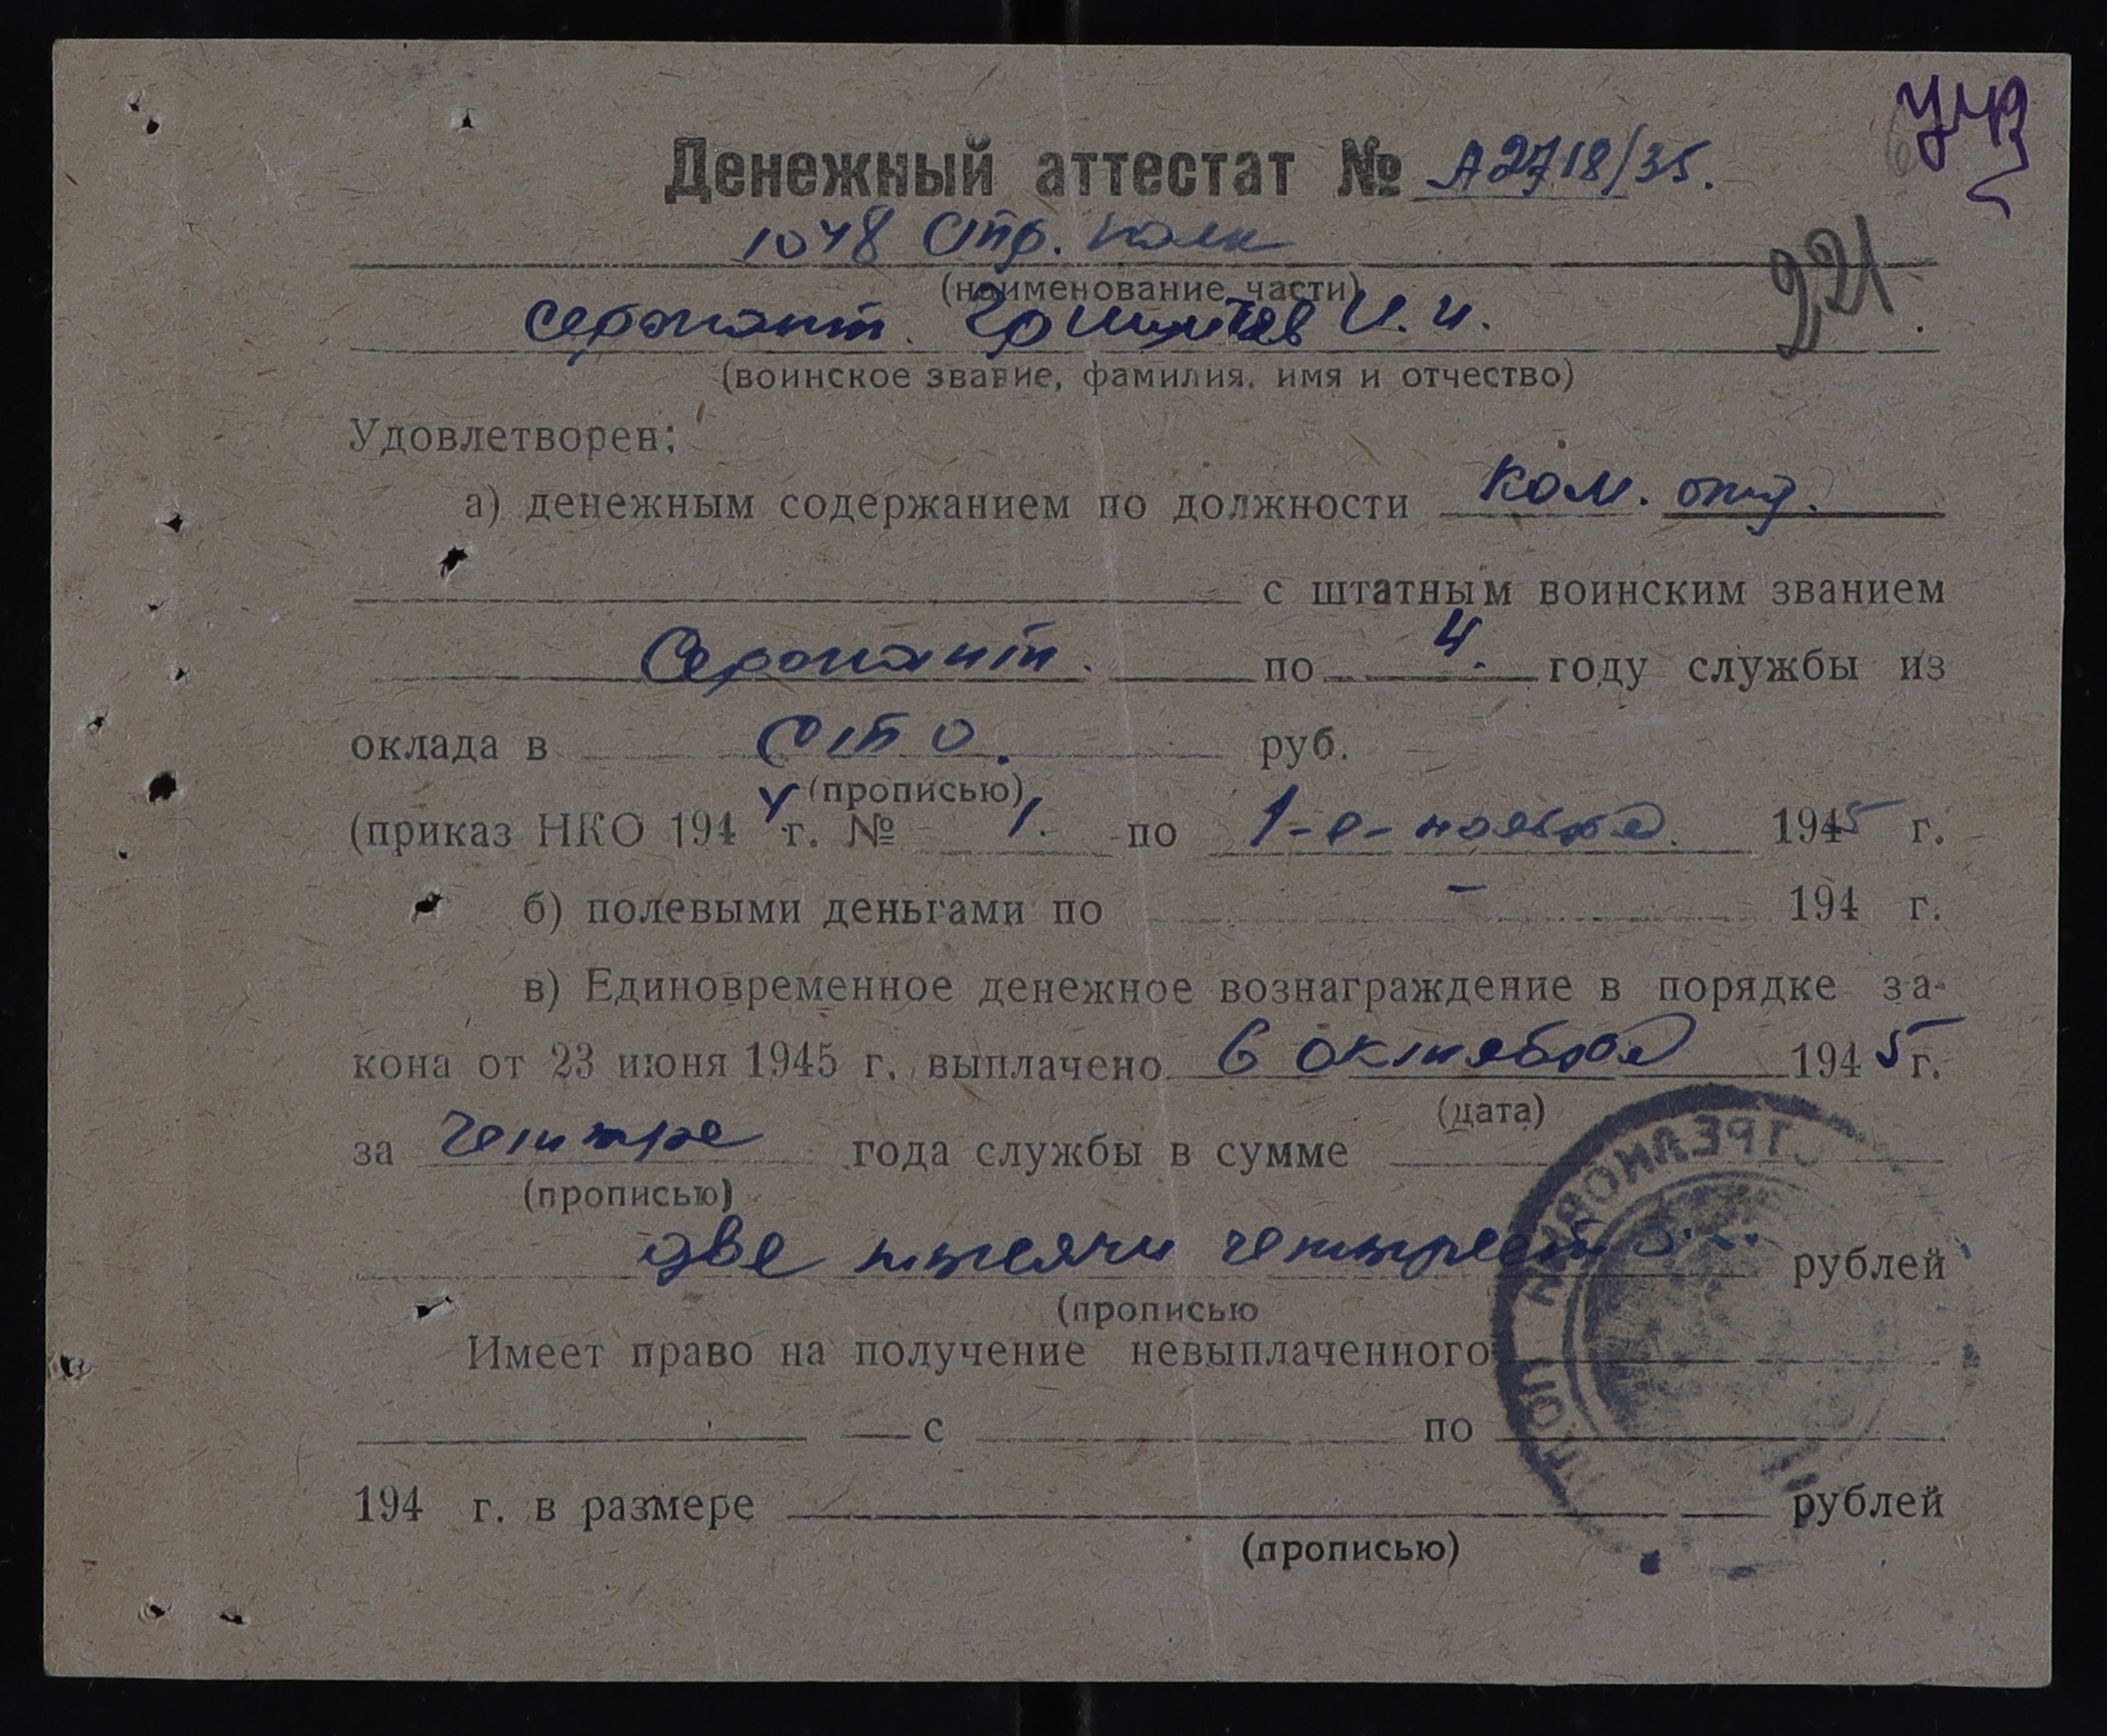 Денежный аттестат № А2718/35.
1048 Стр. полк
(наименование части)
сержант. И. И.
221
(воинское звание, фамилия, имя и отчество)
Удовлетворен:
а) денежным содержанием по должности Ком. отд.
с штатным воинским званием
Сержант. по 4. году службы из
оклада в сто. руб.
(прописью)
(приказ НКО 194 4 г. № 1. по 1-е-ноября 1945 г.
б) полевыми деньгами по - 194 г.
в) Единовременное денежное вознаграждение в порядке за-
кона от 23 июня 1945 г. выплачено 6 октября 1945 г.
(дата)
за четыре года службы в сумме
(прописью)
две тысячи четыреста рублей
(прописью
Имеет право на получение невыплаченного
с по
194 г. в размере рублей
(прописью)
СТРЕЛКОВЫЙ ПОЛК